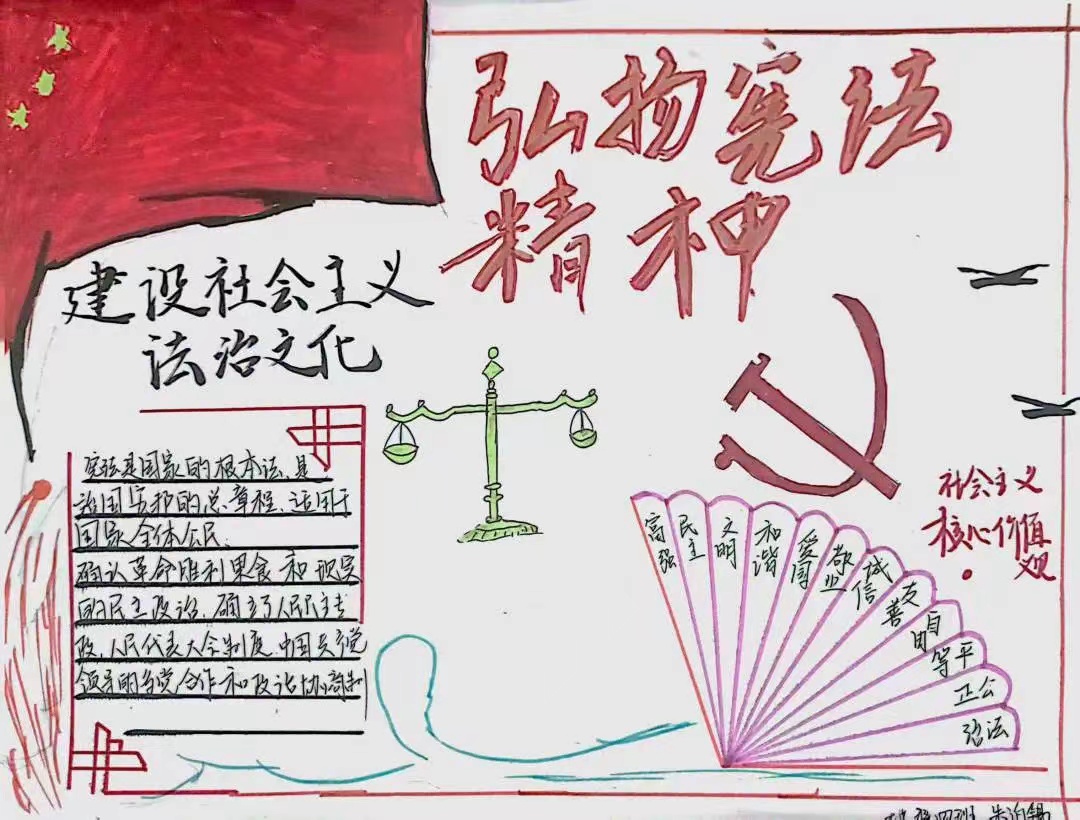 弘扬宪法
精神
建设社会主义
法治文化
宪法是国家的根本法、是
治国安邦的总章程、适用于
国家全体公民.
确认革命胜利果食和现实
的民主政治、确立了人民民主专
政、人民代表大会制度、中国共产党
领导的多党合作和政治协商制
社会主义
核心价值
观
富强
民主
文明
和谐
爱国
敬业
诚信
友善
自由
平等
公正
法治
四班